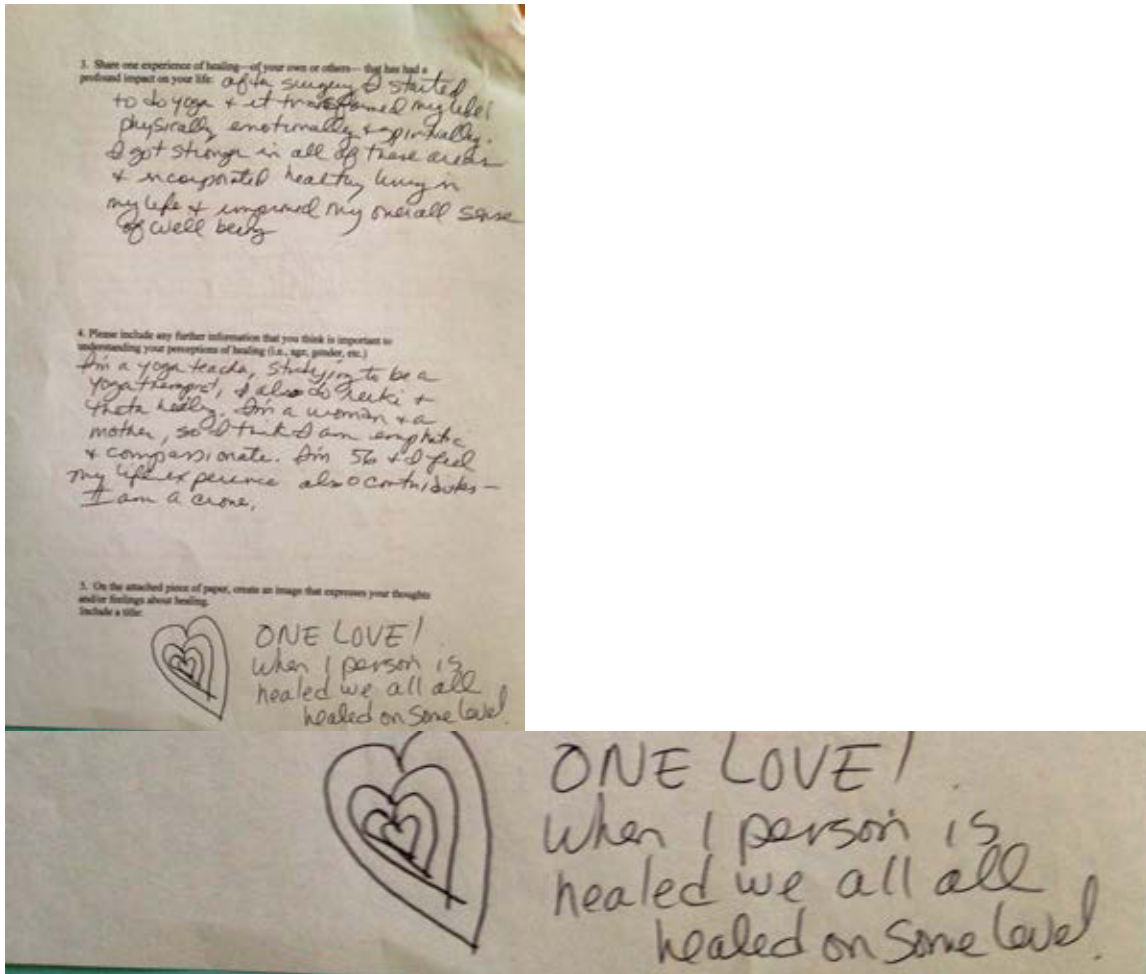 3. Share one experience of healing—of your own or others— that has had a
profound impact on your life: after surgery I started
to do yoga & it transformed my life!
physically, emotionally & spiritually.
I got stronger in all of these areas
& incorporated healthy living in
my life & improved my overall sense
of well being
4. Please include any further information that you think is important to
understanding your perceptions of healing (i.e., age, gender, etc.)
I'm a yoga teacher, studying to be a
yoga therapist, I also do reiki &
theta healing. I'm a woman & a
mother, so I think I am emphatic
& compassionate. I'm 56 & I feel
my life experience also contributes —
I am a crone.
5. On the attached piece of paper, create an image that expresses your thoughts
and/or feelings about healing.
Include a title:
ONE LOVE!
When 1 person is
healed we all all
healed on some level.
ONE LOVE!
When 1 person is
healed we all all
healed on some level.